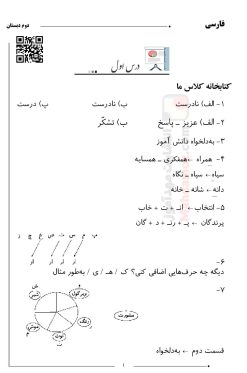 فارسی
دوم دبستان
درس اول
کتابخانه کلاس ما
۱- الف) نادرست ب) نادرست پ) درست
۲- الف) عزیز ـ پاسخ ب) تشکّر
۳- به‌دلخواه دانش آموز
۴- همراه ← همفکری ـ همسایه
سیاه ← سپاه ـ نگاه
دانه ← شانه ـ خانه
۵- انتخاب ← انـ + ت + خاب
پرندگان ← پـ + رنـ + د + گان
۶-
دیگه چه حرف‌هایی اضافی کنی؟ ک / هـ / ی / به‌طور مثال
۷-
مشورت
رنگ
توت
قسمت دوم ← به‌دلخواه
۱